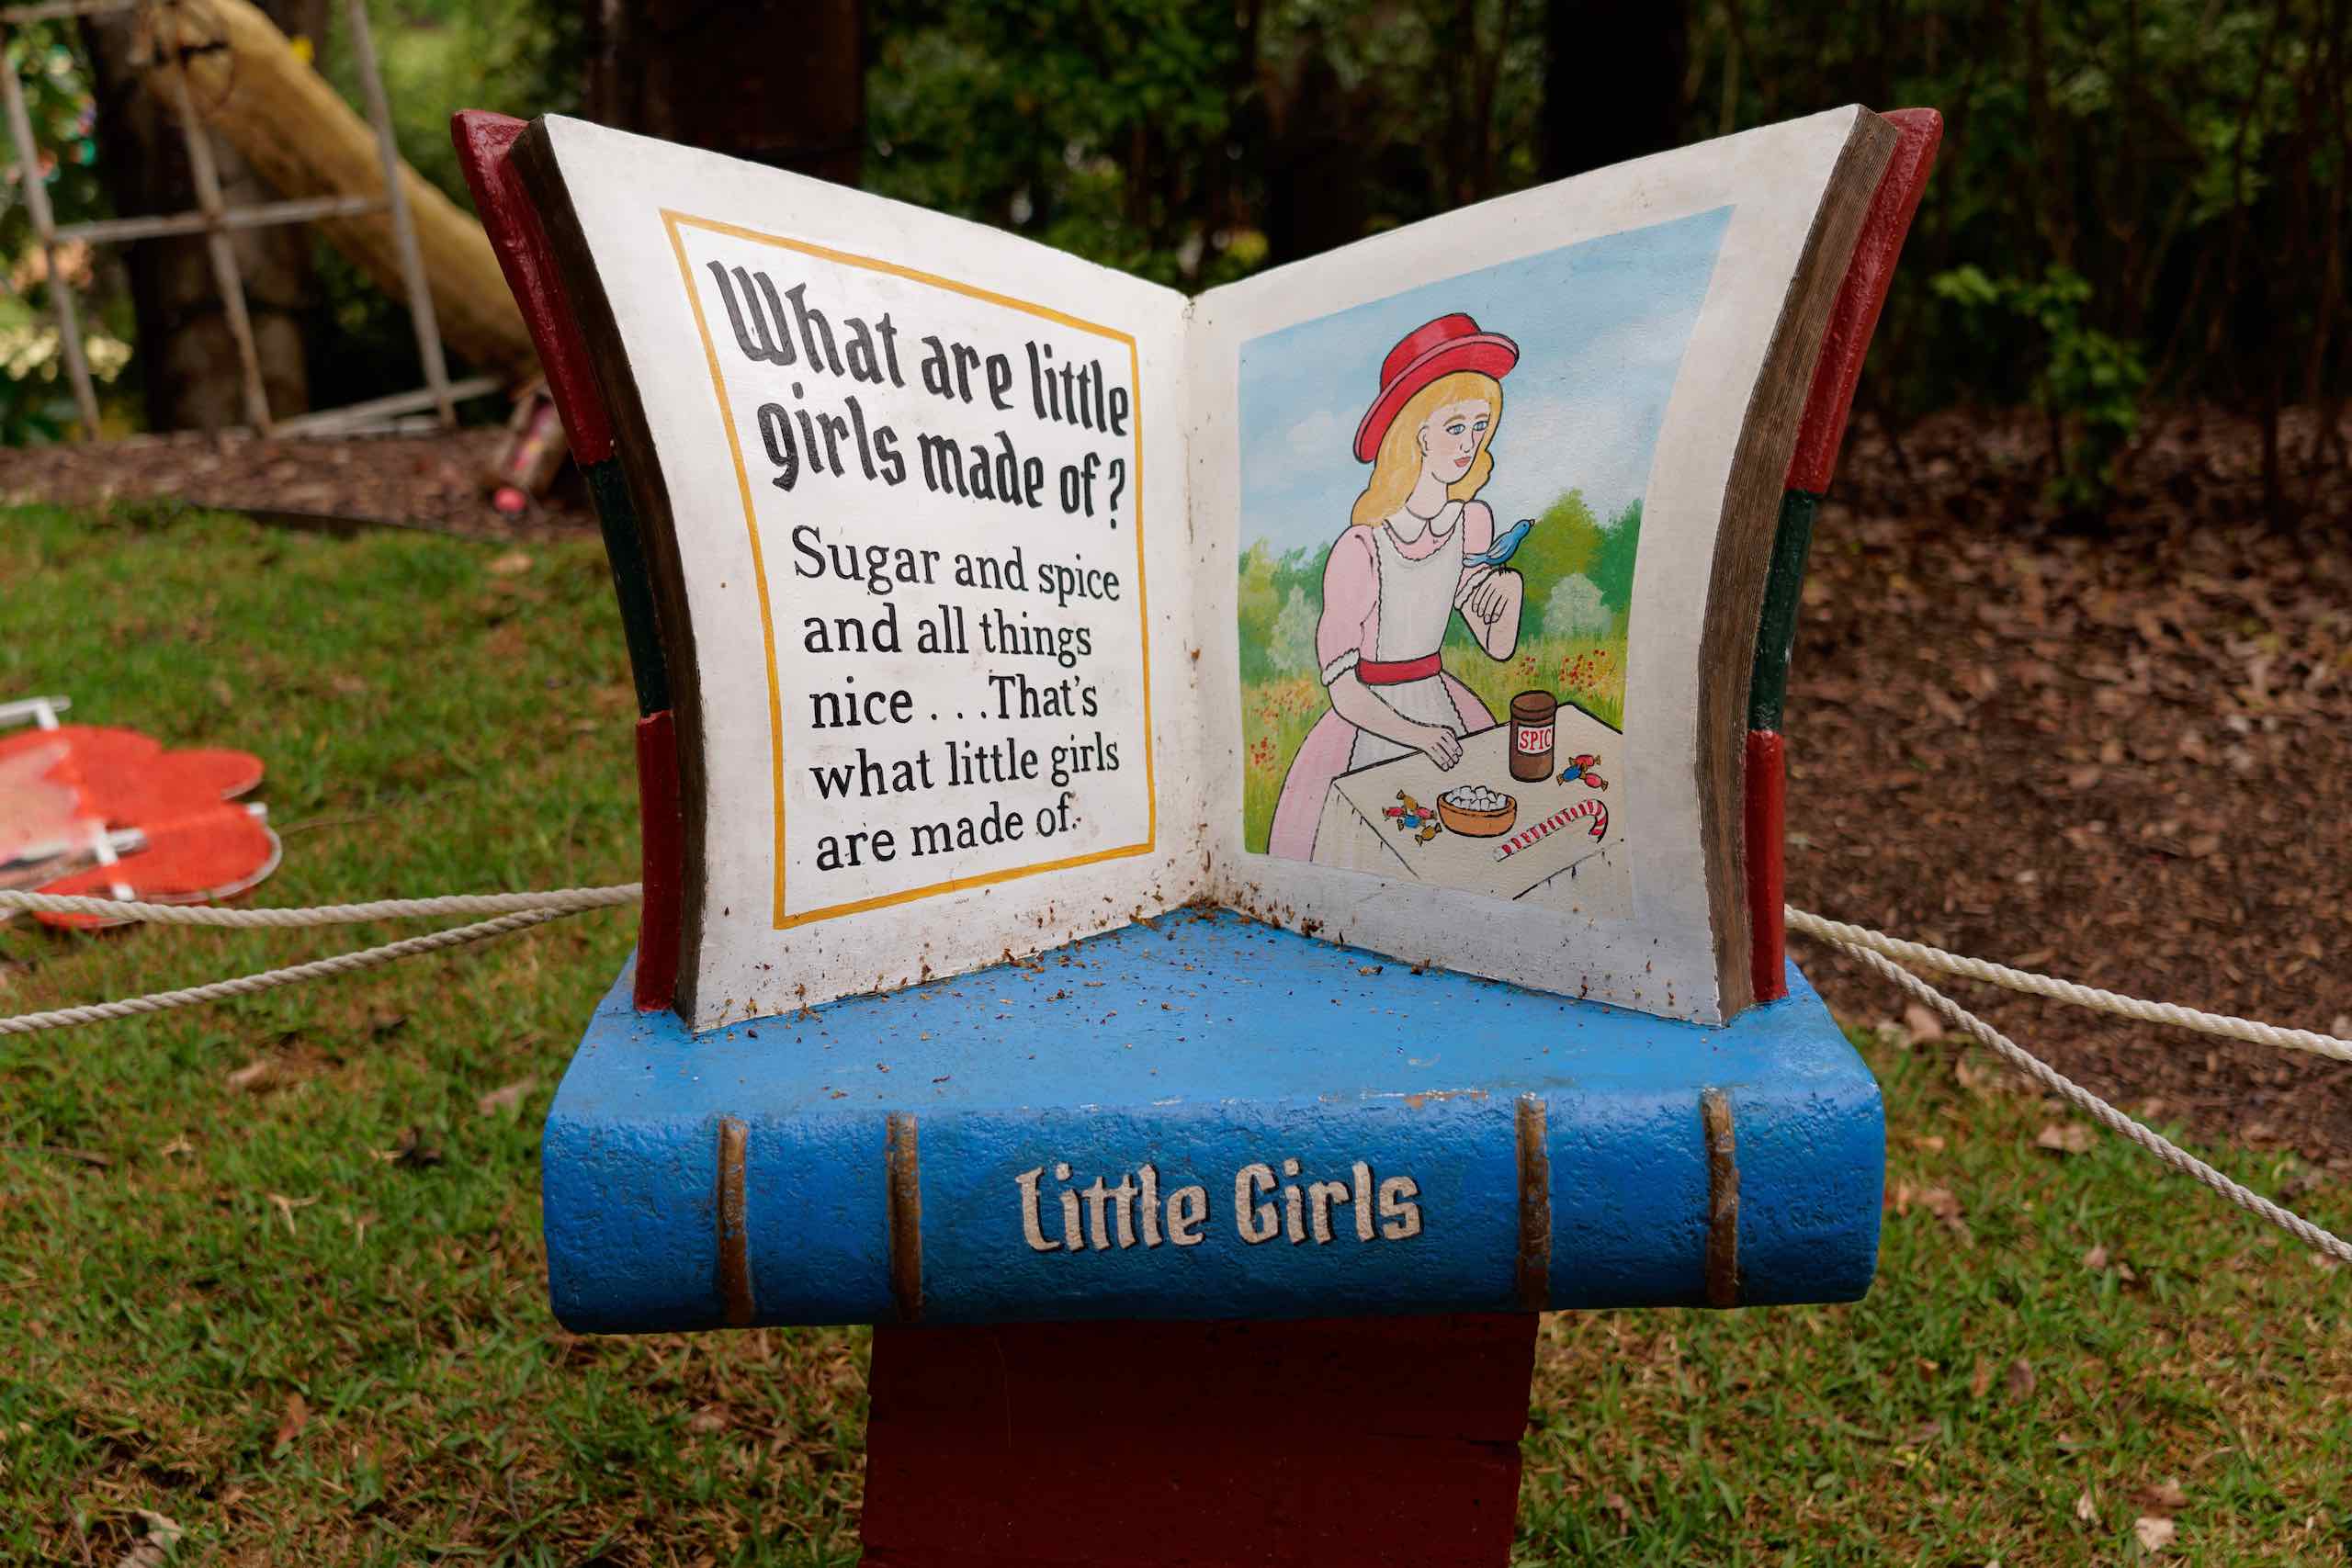 What are little
girls made of?
Sugar and spice
and all things
nice . . . That's
what little girls
are made of.
SPIC
Little Girls